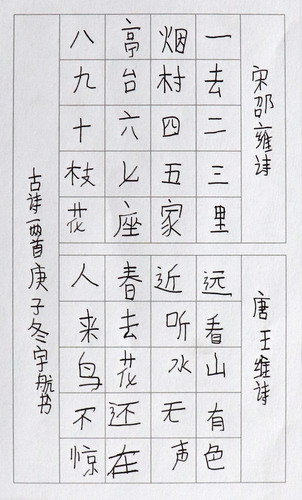 宋邵雍诗
一去二三里
烟村四五家
亭台六七座
八九十枝花
唐王维诗
远看山有色
近听水无声
春去花还在
人来鸟不惊
古诗两首庚子冬宇航书